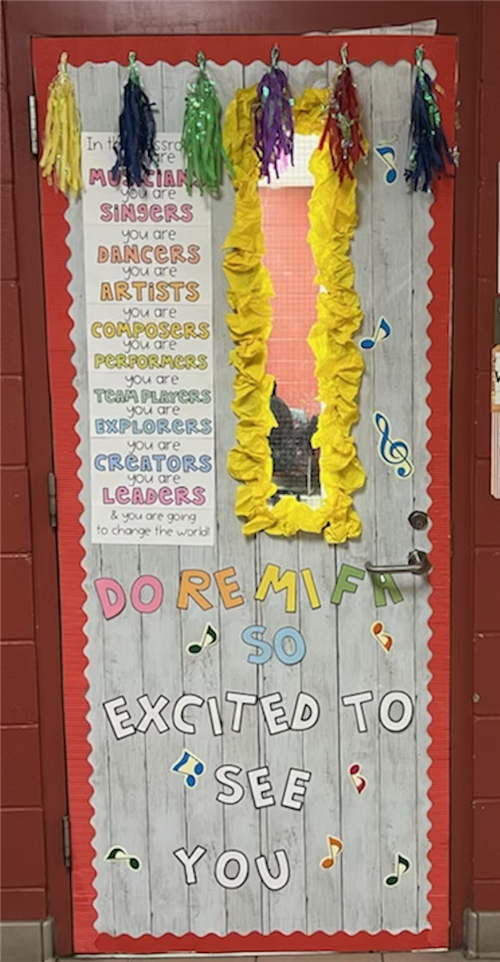 In
are
MUSICIANS
you are
SINGERS
you are
DANCERS
you are
ARTISTS
you are
COMPOSERS
you are
PERFORMERS
you are
TEAM PLAYERS
you are
EXPLORERS
you are
CREATORS
you are
LEADERS
& you are going
to change the world!
DO RE MI FA
SO
EXCITED TO
SEE
YOU